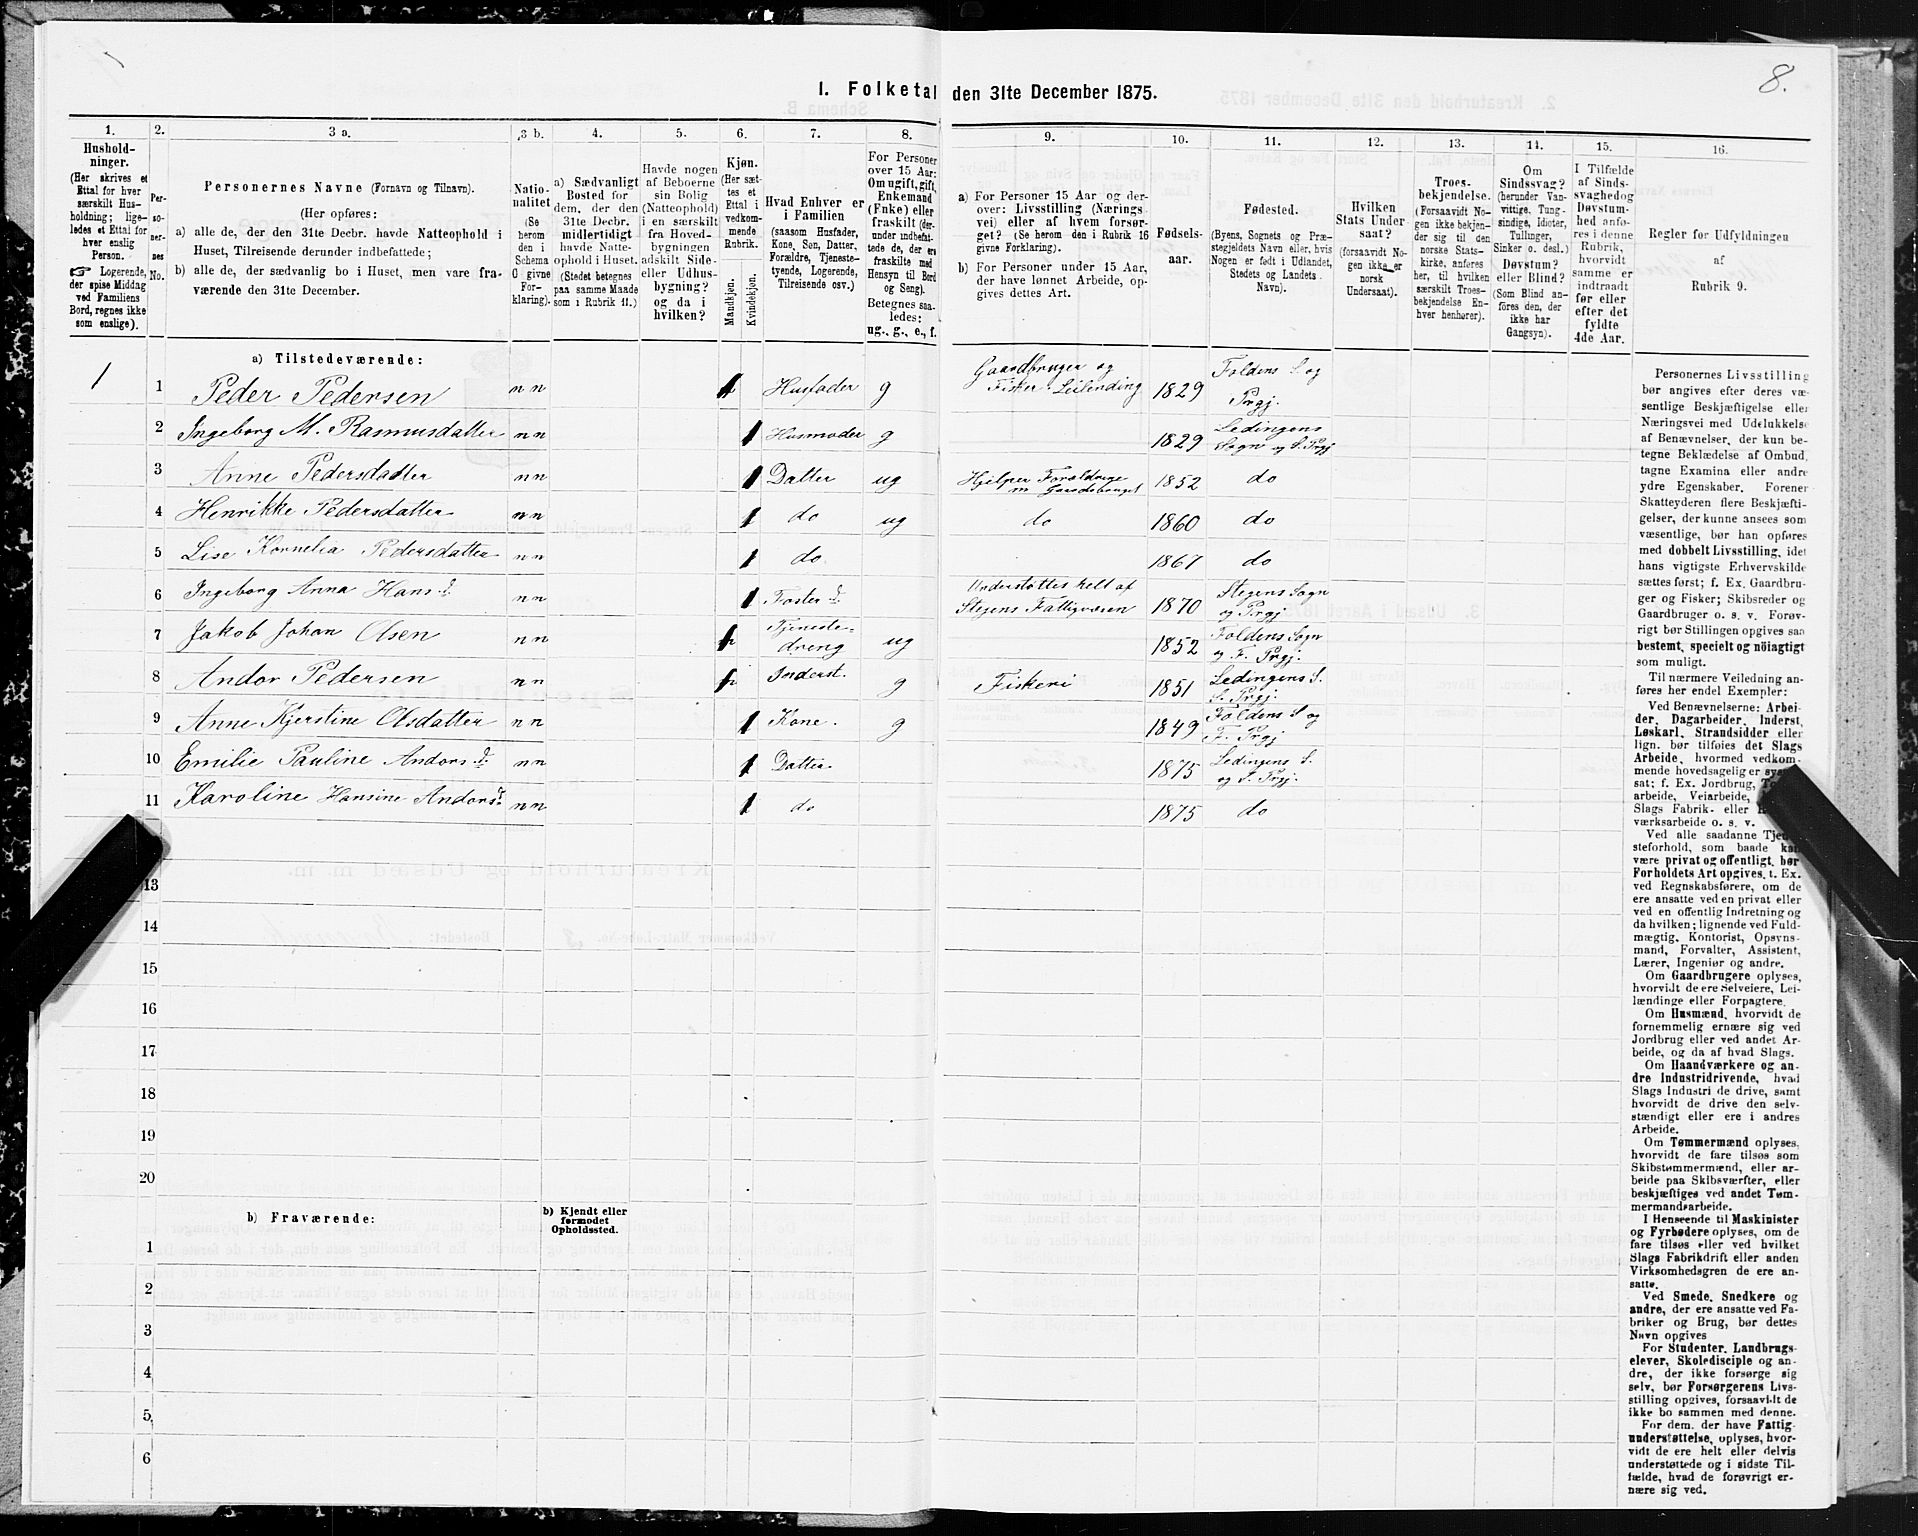 8.
1. Folketal den 31te December 1875.
1.
Hushold-
ninger.
(Her skrives et
Ettal for hver
særskilt Hus-
holdning; lige-
ledes et Ettal for
hver enslig
Person.
☞ Logerende,
der spise Middag
ved Familiens
Bord, regnes ikke
som enslige).
2.
Per-
so-
ner-
nes
No.
3 a.
Personernes Navne (Fornavn og Tilnavn).
(Her opføres:
a) alle de, der den 31te Decbr. havde Natteophold i
Huset, Tilreisende derunder indbefattede;
b) alle de, der sædvanlig bo i Huset, men vare fra-
værende den 31te December.
3 b.
Natio-
nalitet
(Se
herom
den i
Schema
O givne
For-
klaring).
4.
a) Sædvanligt
Bosted for
dem, der den
31te Decbr.
midlertidigt
havde Natte-
ophold i Huset.
(Stedet betegnes
paa samme Maade
som i Rubrik 11.)
5.
Havde nogen
af Beboerne
sin Bolig
(Natteophold)
i en særskilt
fra Hoved-
bygningen
adskilt Side-
eller Udhus-
bygning?
og da i
hvilken?
6.
Kjøn.
(Her sæt-
tes et
Ettal i
vedkom-
mende
Rubrik.
Mandkjøn.
Kvindekjøn.
7.
Hvad Enhver er
i Familien
(saasom Husfader,
Kone, Søn, Datter,
Forældre, Tjeneste-
tyende, Logerende,
Tilreisende osv.)
8.
For Personer
over 15 Aar:
Om ugift, gift,
Enkemand
(Enke) eller
fraskilt (der-
under indbefat-
tede de, der ere
fraskilte med
Hensyn til Bord
og Seng).
Betegnes saa-
ledes:
ug., g., e., f.
9.
a) For Personer 15 Aar og der-
over: Livsstilling (Nærings-
vei) eller af hvem forsør-
get? (Se herom den i Rubrik 16
givne Forklaring).
b) For Personer under 15 Aar,
der have lønnet Arbeide, op-
gives dettes Art.
10.
Fødsels-
aar.
11.
Fødested.
(Byens, Sognets og Præ-
stegjeldets Navn eller, hvis
Nogen er født i Udlandet,
Stedets og Landets
Navn).
12.
Hvilken
Stats Under-
saat?
(forsaavidt No-
gen ikke er
norsk
Undersaat).
13.
Troes-
bekjendelse.
(Forsaavidt No-
gen ikke bekjen-
der sig til den
norske Stats-
kirke, anføres
her, til hvilken
særskilt Troes-
bekjendelse En-
hver henhører).
14.
Om
Sindssvag?
(herunder Van-
vittige, Tung-
sindige, Idioter,
Tullinger,
Sinker o. desl.)
Døvstum?
eller Blind?
(Som Blind an-
føres den, der
ikke har
Gangsyn).
15.
I Tilfælde
af Sinds-
svaghed og
Døvstum-
hed anfø-
res i denne
Rubrik,
hvorvidt
samme er
indtraadt
før eller
efter det
fyldte
4de Aar.
16.
Regler for Udfyldningen
af
Rubrik 9.
a) Tilstedeværende:
1 1 Peder Pedersen nn 1 Husfader g Gaardbruger og Fisker Leilending 1829 Foldens S og Prgj.
2 Ingeborg M. Rasmusdatter nn 1 Husmoder g 1829 Lødingens Sogn og S. Prgj
3 Anne Pedersdatter nn 1 Datter ug Hjelper Forældrene m Gaardsbruget 1852 do
4 Henrikke Pedersdatter nn 1 do ug do 1860 do
5 Lise Kornelia Pedersdatter nn 1 do. 1867 do
6 Ingeborg Anna Hans d. nn 1 Foster d. Understøttes helt af Stegens Fattigvæsen 1870 Stegens Sogn og Prgj
7 Jakob Johan Olsen nn 1 Tjeneste-dreng ug 1852 Foldens Sogn og F. Prgj.
8 Andor Pedersen nn 1 Inderst. g Fiskeri 1851 Lødingens S. S. Prgj
9 Anne Kjerstine Olsdatter nn 1 Kone. g 1849 Foldens S og F. Prgj
10 Emilie Pauline Andors d. nn 1 Datter 1875 Lødingens S. og S. Prgj.
11 Karoline Hansine Andors d. nn 1 do 1875 do
13
14
15
16
17
18
19
20
b) Fraværende:
b) Kjendt eller
formodet
Opholdssted.
1
2
3
4
5
6
Personernes Livsstilling
bør angives efter deres væ-
sentlige Beskjæftigelse eller
Næringsvei med Udelukkelse
af Benævnelser, der kun be-
tegne Beklædelse af Ombud,
tagne Examina eller andre
ydre Egenskaber. Forener
Skatteyderen flere Beskjæfti-
gelser, der kunne ansees som
væsentlige, bør han opføres
med dobbelt Livsstilling, idet
hans vigtigste Erhvervskilde
sættes først; f. Ex. Gaardbru-
ger og Fisker; Skibsreder og
Gaardbruger o. s. v. Forøv-
rigt bør Stillingen opgives saa
bestemt, specielt og nöiagtigt
som muligt.
Til nærmere Veiledning an-
føres her endel Exempler:
Ved Benævnelserne: Arbei-
der, Dagarbeider, Inderst,
Løskarl, Strandsidder eller
lign. bør tilføies det Slags
Arbeide, hvormed vedkom-
mende hovedsagelig er syssel-
sat; f. Ex. Jordbrug,
arbeide, Veiarbeide,
Slags Fabrik- eller
værksarbeide o. s. v.
Ved alle saadanne Tje-
steforhold, som baade kan
være privat og offentligt, bør
Forholdets Art opgives, t. Ex.
ved Regnskabsførere, om de
ere ansatte ved en privat eller
ved en offentlig Indretning og
da hvilken; lignende ved Fuld-
mægtig, Kontorist, Opsyns-
mand, Forvalter, Assistent,
Lærer, Ingeniør og andre.
Om Gaardbrugere oplyses,
hvorvidt de ere Selveiere, Lei-
lændinge eller Forpagtere.
Om Husmænd, hvorvidt de
fornemmelig ernære sig ved
Jordbrug eller ved andet Ar-
beide, og da af hvad Slags.
Om Haandværkere og an-
dre Industridrivende, hvad
Slags Industri de drive, samt
hvorvidt de drive den selv-
stændigt eller ere i andres
Arbeide.
Om Tømmermænd oplyses,
hvorvidt de fare tilsøs som
Skibstømmermænd, eller ar-
beide paa Skibsværfter, eller
beskjæftiges ved andet Tøm-
mermandsarbeide.
I Henseende til Maskinister
og Fyrbødere oplyses, om de
fare tilsøs eller ved hvilket
Slags Fabrikdrift eller anden
Virksomhedsgren de ere an-
satte.
Ved Smede, Snedkere og
andre, der ere ansatte ved Fa-
briker og Brug, bør dettes
Navn opgives
For Studenter, Landbrugs-
elever, Skoledisciple og an-
dre, der ikke forsørge sig
selv, bør Forsørgerens Livs-
stilling opgives, forsaavidt de
ikke bo sammen med denne.
For dem, der have Fattig-
understøttelse, oplyses, hvor-
vidt de ere helt eller delvis
understøttede og i sidste Til-
fælde, hvad de forøvrigt er-
nære sig ved.